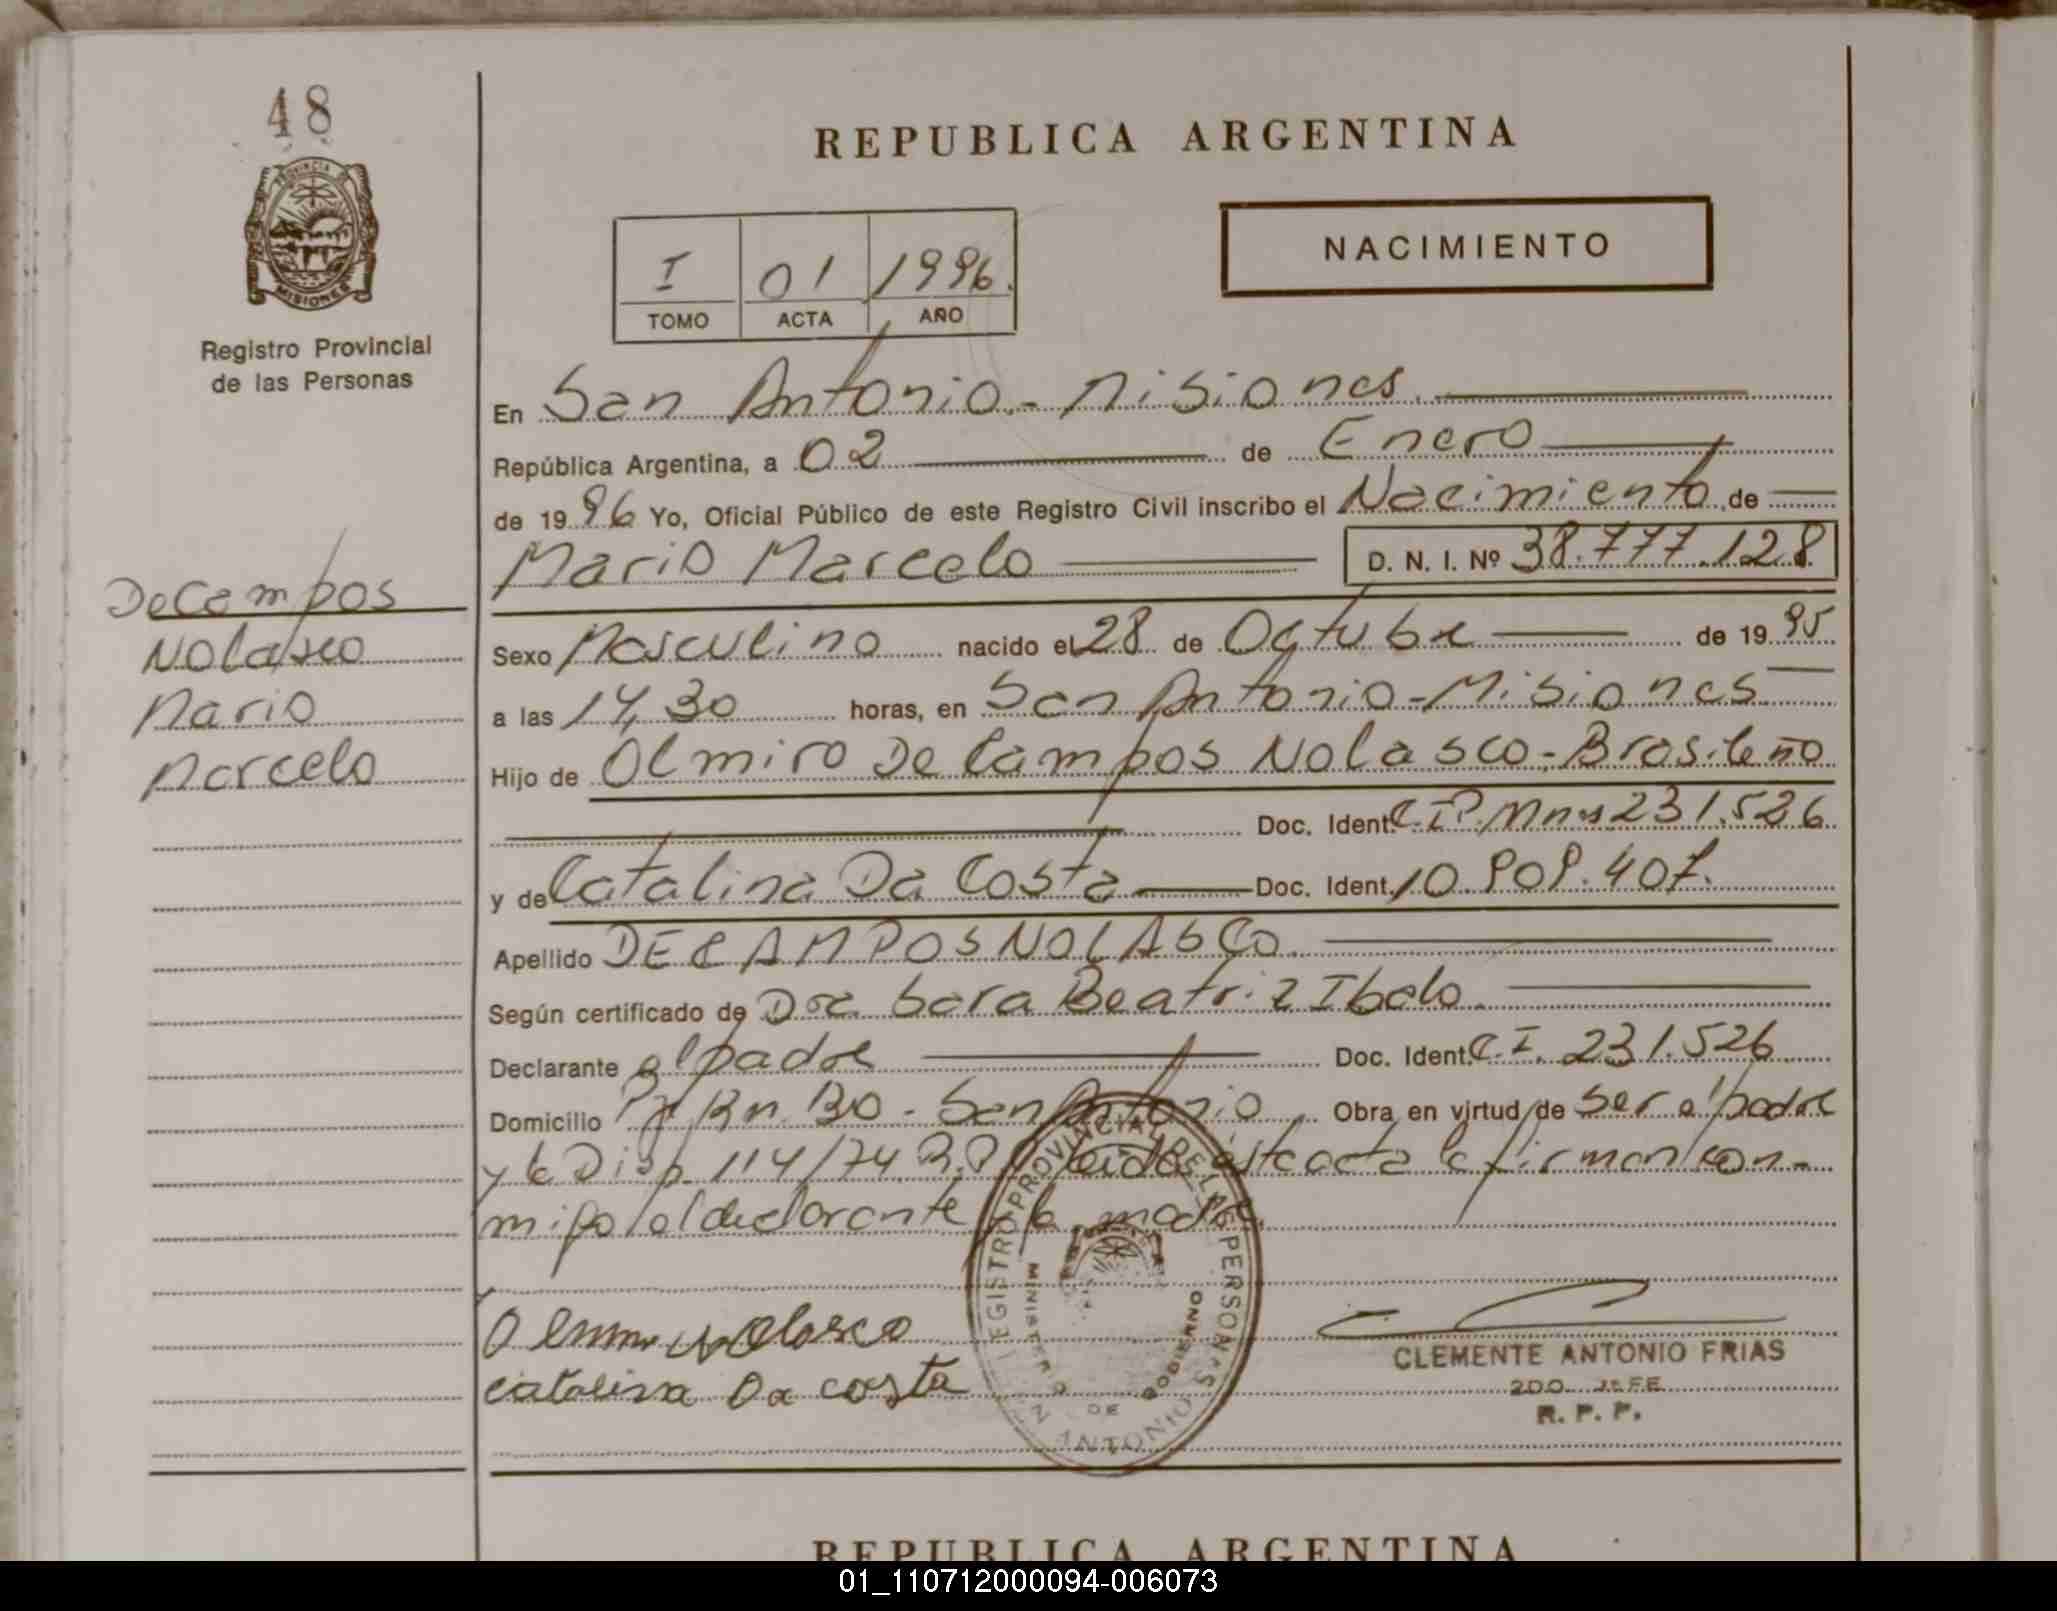 48
PROVINCIA DE
MISIONES
Registro Provincial
de las Personas
REPUBLICA ARGENTINA
I 01 1996.
TOMO ACTA AÑO
NACIMIENTO
En San Antonio - Misiones.
República Argentina, a 02 de Enero
de 1996 Yo, Oficial Público de este Registro Civil inscribo el Nacimiento de
Mario Marcelo D. N. I. Nº 38.777.128
De Campos
Nolasco
Mario
Marcelo
Sexo Masculino nacido el 28 de Octubre de 1995
a las 14,30 horas, en San Antonio - Misiones
Hijo de Olmiro De Campos Nolasco - Brasileño
Doc. Ident. C.I.P. Mnes 231.526
y de Catalina Da Costa Doc. Ident. 10.909.407.
Apellido DE CAMPOS NOLASCO.
Según certificado de Dra. Sara Beatriz Ibalo.
Declarante el padre Doc. Ident. C.I. 231.526
Domicilio Bo - San Antonio Obra en virtud de ser el padre
y la Disp. 114/74 R.P. Leída ésta acta la firman con-
migo el declarante y la madre.
Olmiro Nolasco
catalina Da costa
REGISTRO PROVINCIAL DE LAS PERSONAS
MINISTERIO DE GOBIERNO
ANTONIO
CLEMENTE ANTONIO FRIAS
2DO. JEFE
R. P. P.
REPUBLICA ARGENTINA
01_110712000094-006073